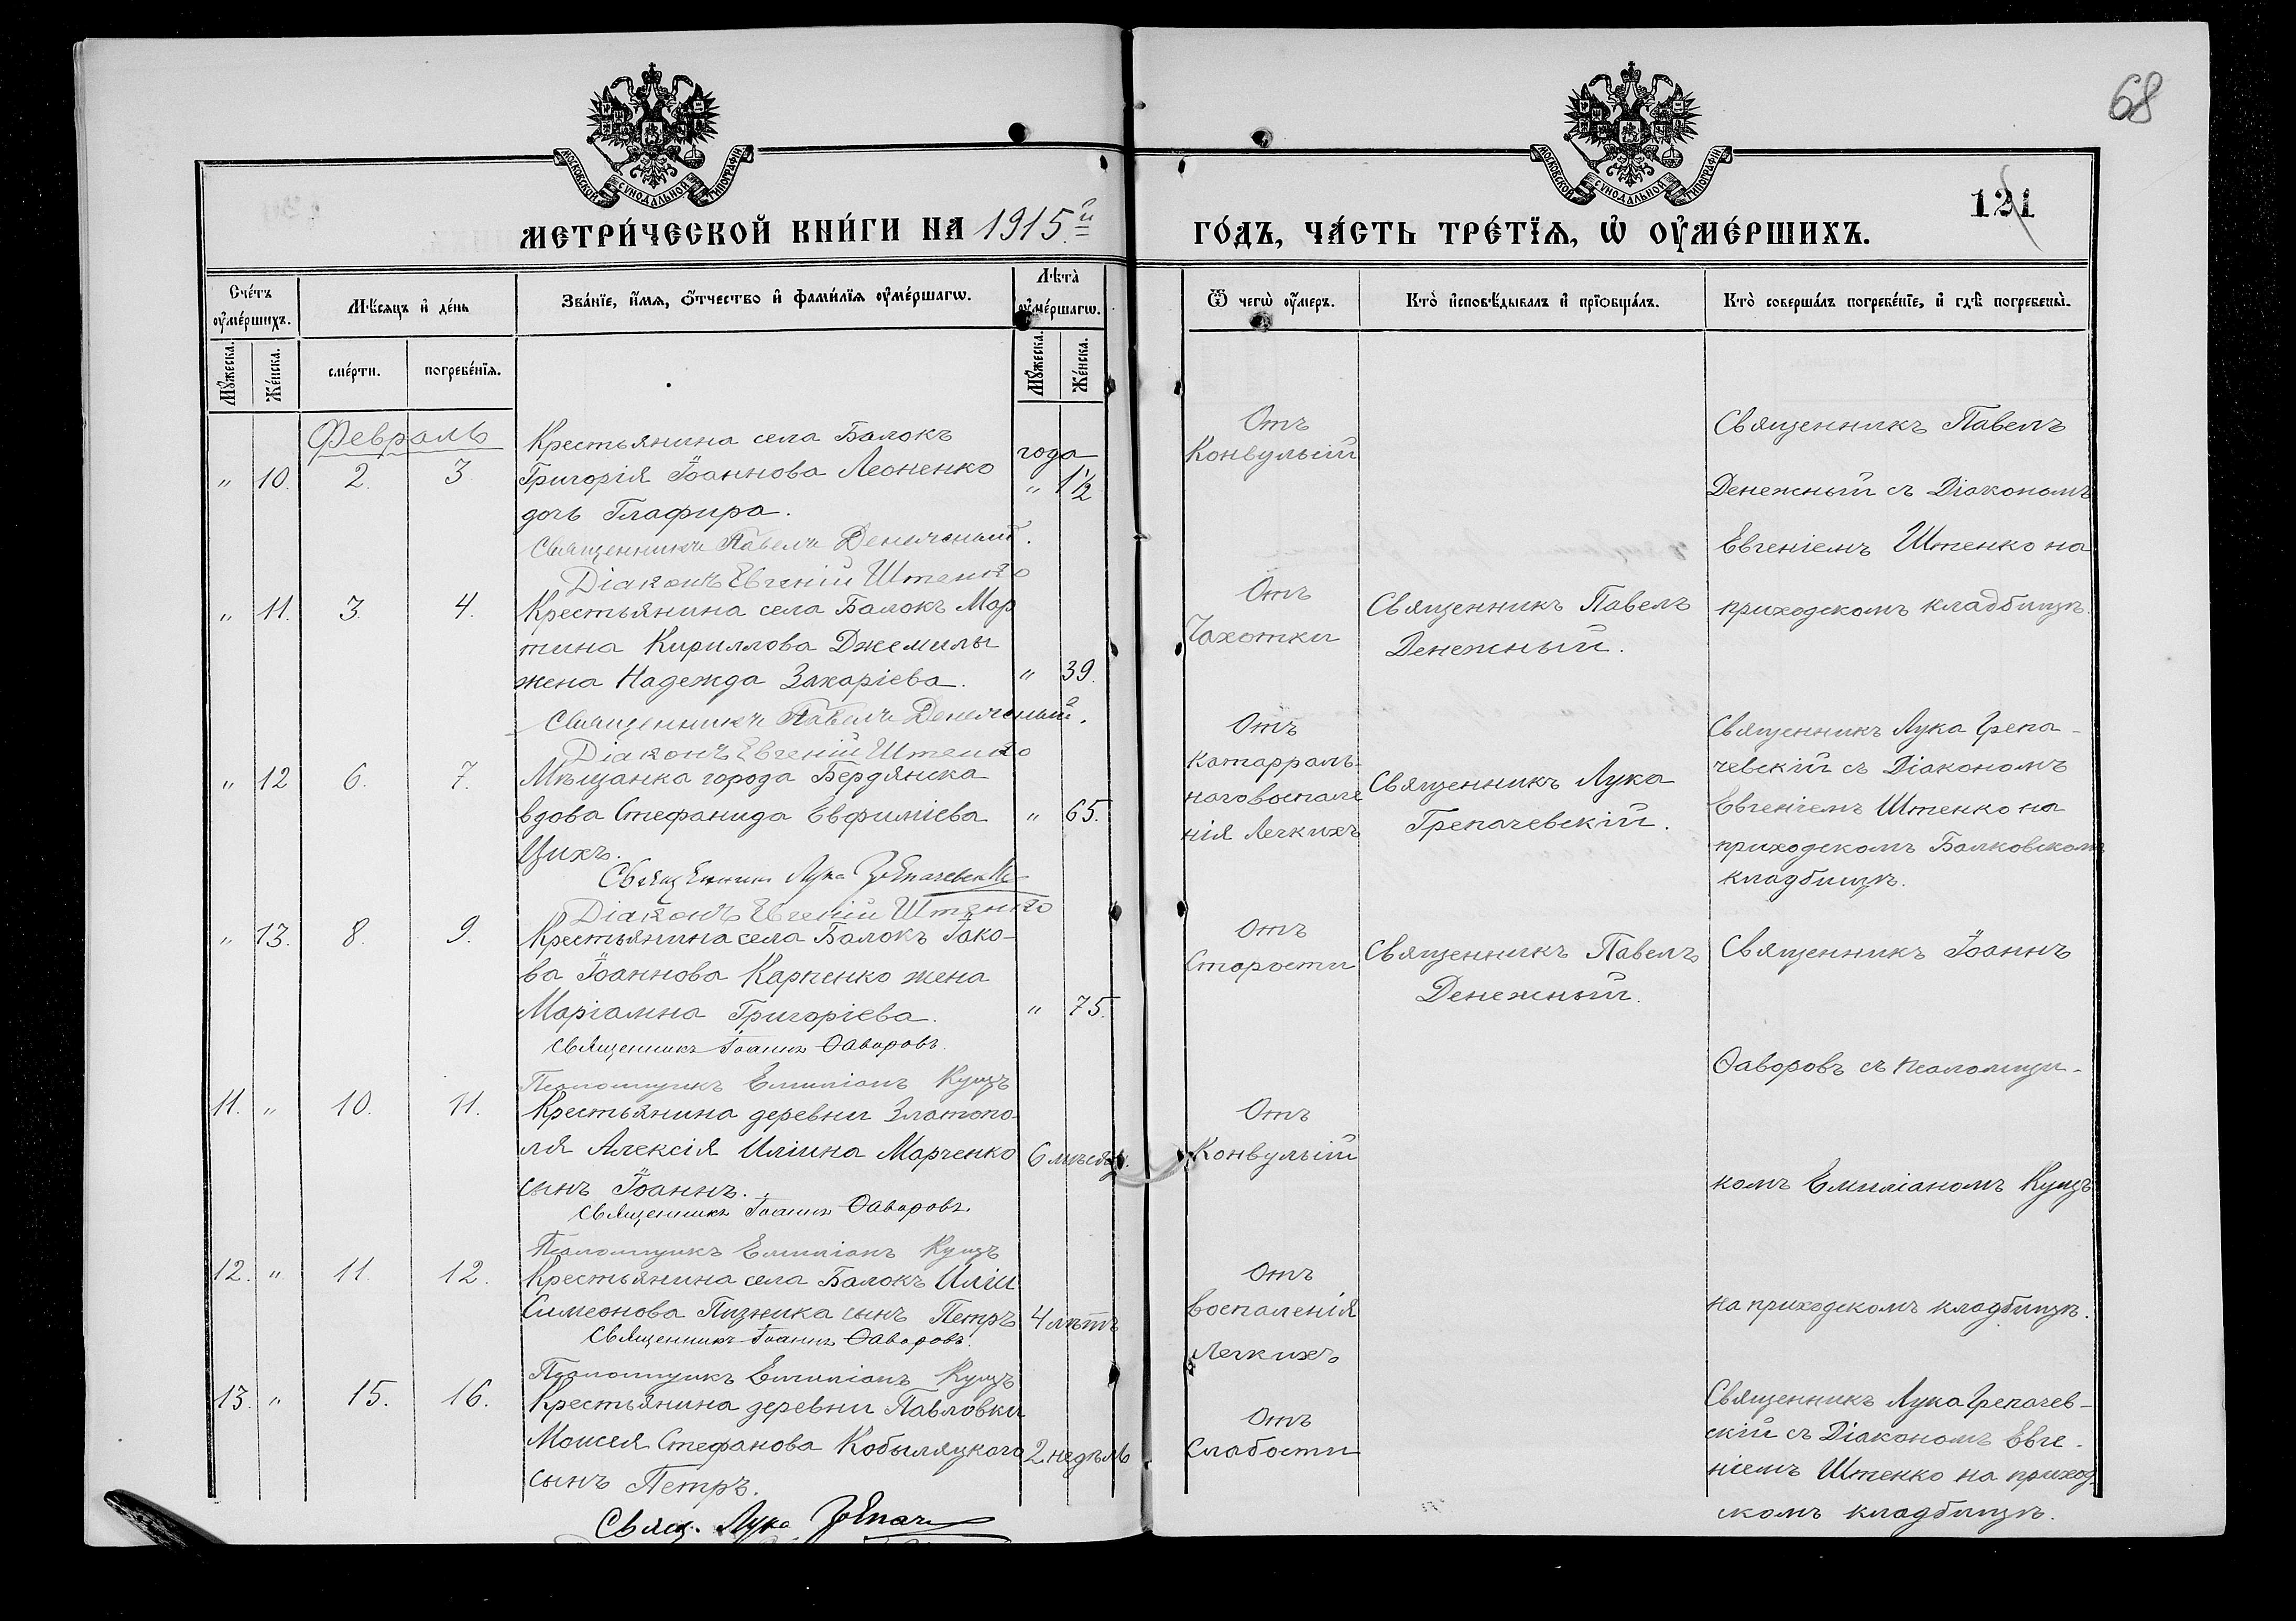 68
МОСКОВСКОЙ СѴНОДАЛЬНОЙ ТИПОГРАФІИ
МОСКОВСКОЙ СѴНОДАЛЬНОЙ ТИПОГРАФІИ
121
МЕТРИ́ЧЕСКОЙ КНИ́ГИ НА 1915й
ГО́ДЪ, ЧА́СТЬ ТРЕ́ТЇѦ, Ѡ҆ ОУ҆МЕ́РШИХЪ.
Сче́тъ оу҆ме́ршихъ.
Мѣ́сѧцъ и҆ де́нь
Зва́нїе, и҆́мѧ, ѻ҆́тчество и҆ фамилїѧ оу҆ме́ршагѡ.
Лѣта̀ оу҆ме́ршагѡ.
Ѿ чегѡ̀ оу҆́меръ.
Кто̀ и҆сповѣ́дывалъ и҆ прїѻбща́лъ.
Кто̀ соверша́лъ погребе́нїе, и҆ гдѣ̀ погребены̀.
Мꙋ́жеска.
Же́нска.
сме́рти.
погребе́нїѧ.
Мꙋ́жеска.
Же́нска.
Февраль
Крестьянина села Балокъ
года
" 10. 2. 3. Григорія Іоаннова Леоненко " 1 1/2
дочь Глафира.
Священникъ Павелъ Денежный.
Діаконъ Евгеній Штенко
Отъ
Конвульсій
Священникъ Павелъ
Денежный съ Діакономъ
Евгеніемъ Штенко на
приходскомъ кладбищѣ.
" 11. 3. 4. Крестьянина села Балокъ Мар
тина Кириллова Джемилы
жена Надежда Захаріева. " 39.
Священникъ Павелъ Денежный.
Діаконъ Евгеній Штенко
Отъ
Чахотки
Священникъ Павелъ
Денежный.
" 12 6. 7. Мѣщанка города Бердянска
вдова Стефанида Евфиміева " 65.
Цихъ.
Священникъ Лука Грепачевскій
Діаконъ Евгеній Штенко
Отъ
Катарраль-
наго воспале
нія Легкихъ
Священникъ Лука
Грепачевскій.
Священникъ Лука Грепа-
чевскій съ Діакономъ
Евгеніемъ Штенко на
приходскомъ Балковскомъ
кладбищѣ.
" 13. 8. 9. Крестьянина села Балокъ Іако-
ва Іоаннова Карпенко жена
Маріамна Григоріева. " 75.
Священникъ Іоаннъ Ѳаворовъ.
Псаломщикъ Емиліанъ Кущъ
Отъ
Старости
Священникъ Павелъ
Денежный.
Священникъ Іоаннъ
Ѳаворовъ съ псаломщи-
комъ Емиліаномъ Кущъ
на приходскомъ кладбищѣ.
11. " 10. 11. Крестьянина деревни Златопо-
ля Алексія Иліина Марченко 6 мѣсяц.
сынъ Іоаннъ.
Священникъ Іоаннъ Ѳаворовъ.
Псаломщикъ Емиліанъ Кущъ
Отъ
Конвульсій
12. " 11. 12. Крестьянина села Балокъ Иліи
Симеонова Пизника сынъ Петръ 4 лѣтъ
Священникъ Іоаннъ Ѳаворовъ.
Псаломщикъ Емиліанъ Кущъ
Отъ
воспаленія
Легкихъ
13. " 15. 16. Крестьянина деревни Павловки
Моисея Стефанова Кобыляцкого 2 недѣль
сынъ Петръ.
Свящ. Лука Грепач
Отъ
Слабости
Священникъ Лука Грепачев-
скій съ Діакономъ Евге-
ніемъ Штенко на приход
скомъ кладбищѣ.